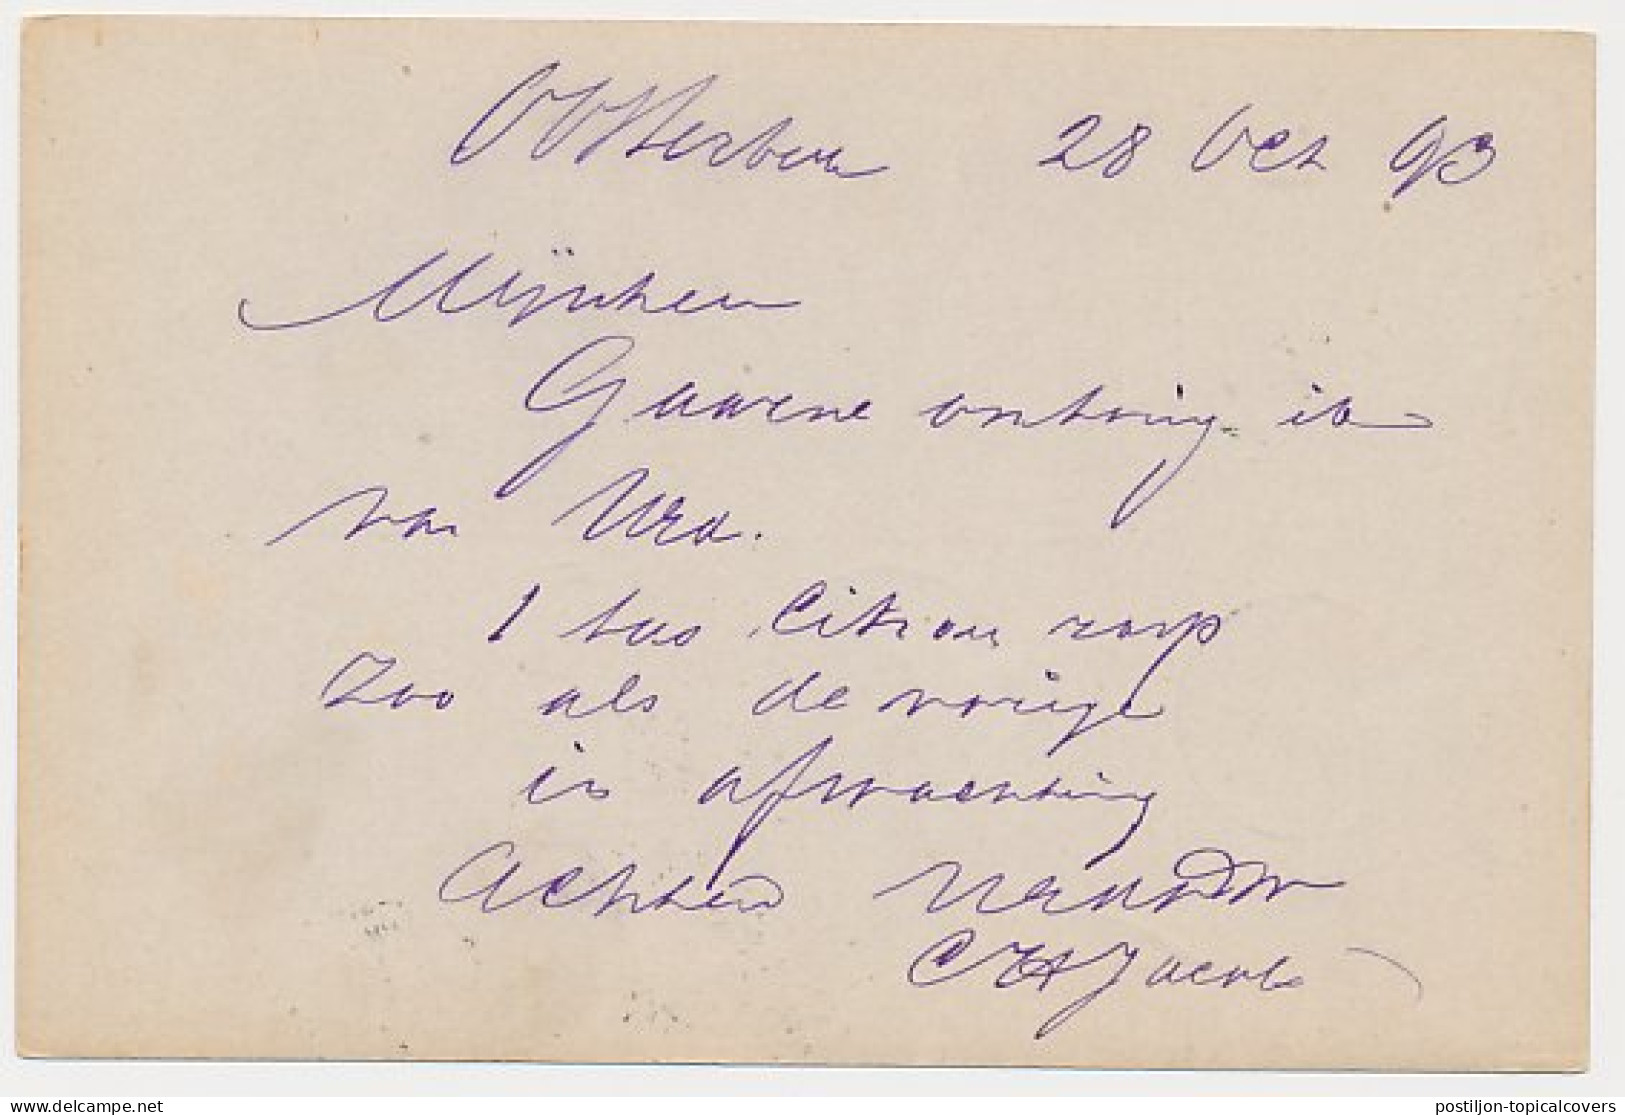 Oosterbeek 28 Oct 93
Mijnheer
Gaarne ontving ik
van UEd.
1 bus Citroen rasp
Zoo als de vorige
in afwachting
Achtend
C H Jacobs
delcampe.net
postiljon-topicalcovers